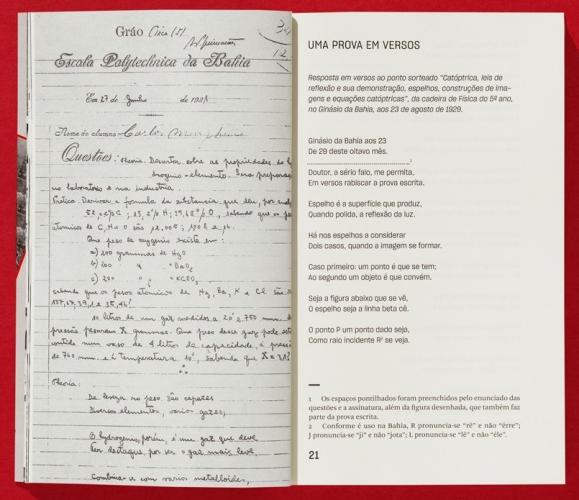 Gráo
Escola Polytechnica da Bahia
Em 27 de Junho de 1931
Nome do alumno Carlos Marighella
Questões: Theoria: Dissertar sobre as propriedades do h
drogenio - elemento. Sua preparaç
no laboratorio e na industria.
Pratica: Derivar a formula da substancia que deu, por
52,2% C; 13,2% H; 34,68% O, sabendo que os pe
atomicos de C, H e O são 12,005; 1,008 e 16.
Que peso de oxygenio existe em:
a) 200 grammas de HgO
b) 200 " " BaO₂
c) 200 " " KClO₃
sabendo que os pesos atomicos de Hg, Ba, K e Cl são
137, 39,1 e 35,46?
10 litros de um gaz medidos a 20° e 750 mm. d
pressão pesaram X grammas. Que peso desse gaz pode esta
contido num vaso de 4 litros da capacidade, á pressã
de 760 mm. e á temperatura 10°, sabendo que
Theoria:
De leveza no peso são capazes
Diversos elementos, varios gazes;
O hydrogenio, porém, é um gaz que deve
Ter destaque, por ser o gaz mais leve.
Combina-se com varios metalloides,
UMA PROVA EM VERSOS
Resposta em versos ao ponto sorteado "Catóptrica, leis de
reflexão e sua demonstração, espelhos, construções de ima-
gens e equações catóptricas", da cadeira de Física do 5º ano,
no Ginásio da Bahia, aos 23 de agosto de 1929.
Ginásio da Bahia aos 23
De 29 deste oitavo mês.
1
Doutor, a sério falo, me permita,
Em versos rabiscar a prova escrita.
Espelho é a superfície que produz,
Quando polida, a reflexão da luz.
Há nos espelhos a considerar
Dois casos, quando a imagem se formar.
Caso primeiro: um ponto é que se tem;
Ao segundo um objeto é que convém.
Seja a figura abaixo que se vê,
O espelho seja a linha beta cê.
O ponto P um ponto dado seja,
Como raio incidente R² se veja.
1 Os espaços pontilhados foram preenchidos pelo enunciado das
questões e a assinatura, além da figura desenhada, que também faz
parte da prova escrita.
2 Conforme é uso na Bahia, R pronuncia-se "rê" e não "érre";
J pronuncia-se "ji" e não "jota"; L pronuncia-se "lê" e não "éle".
21